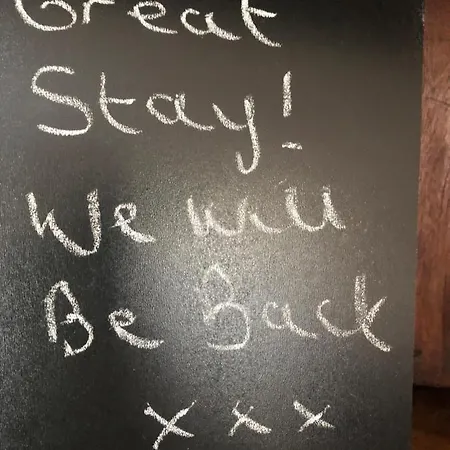 Great
Stay!
We will
Be Back
x x x